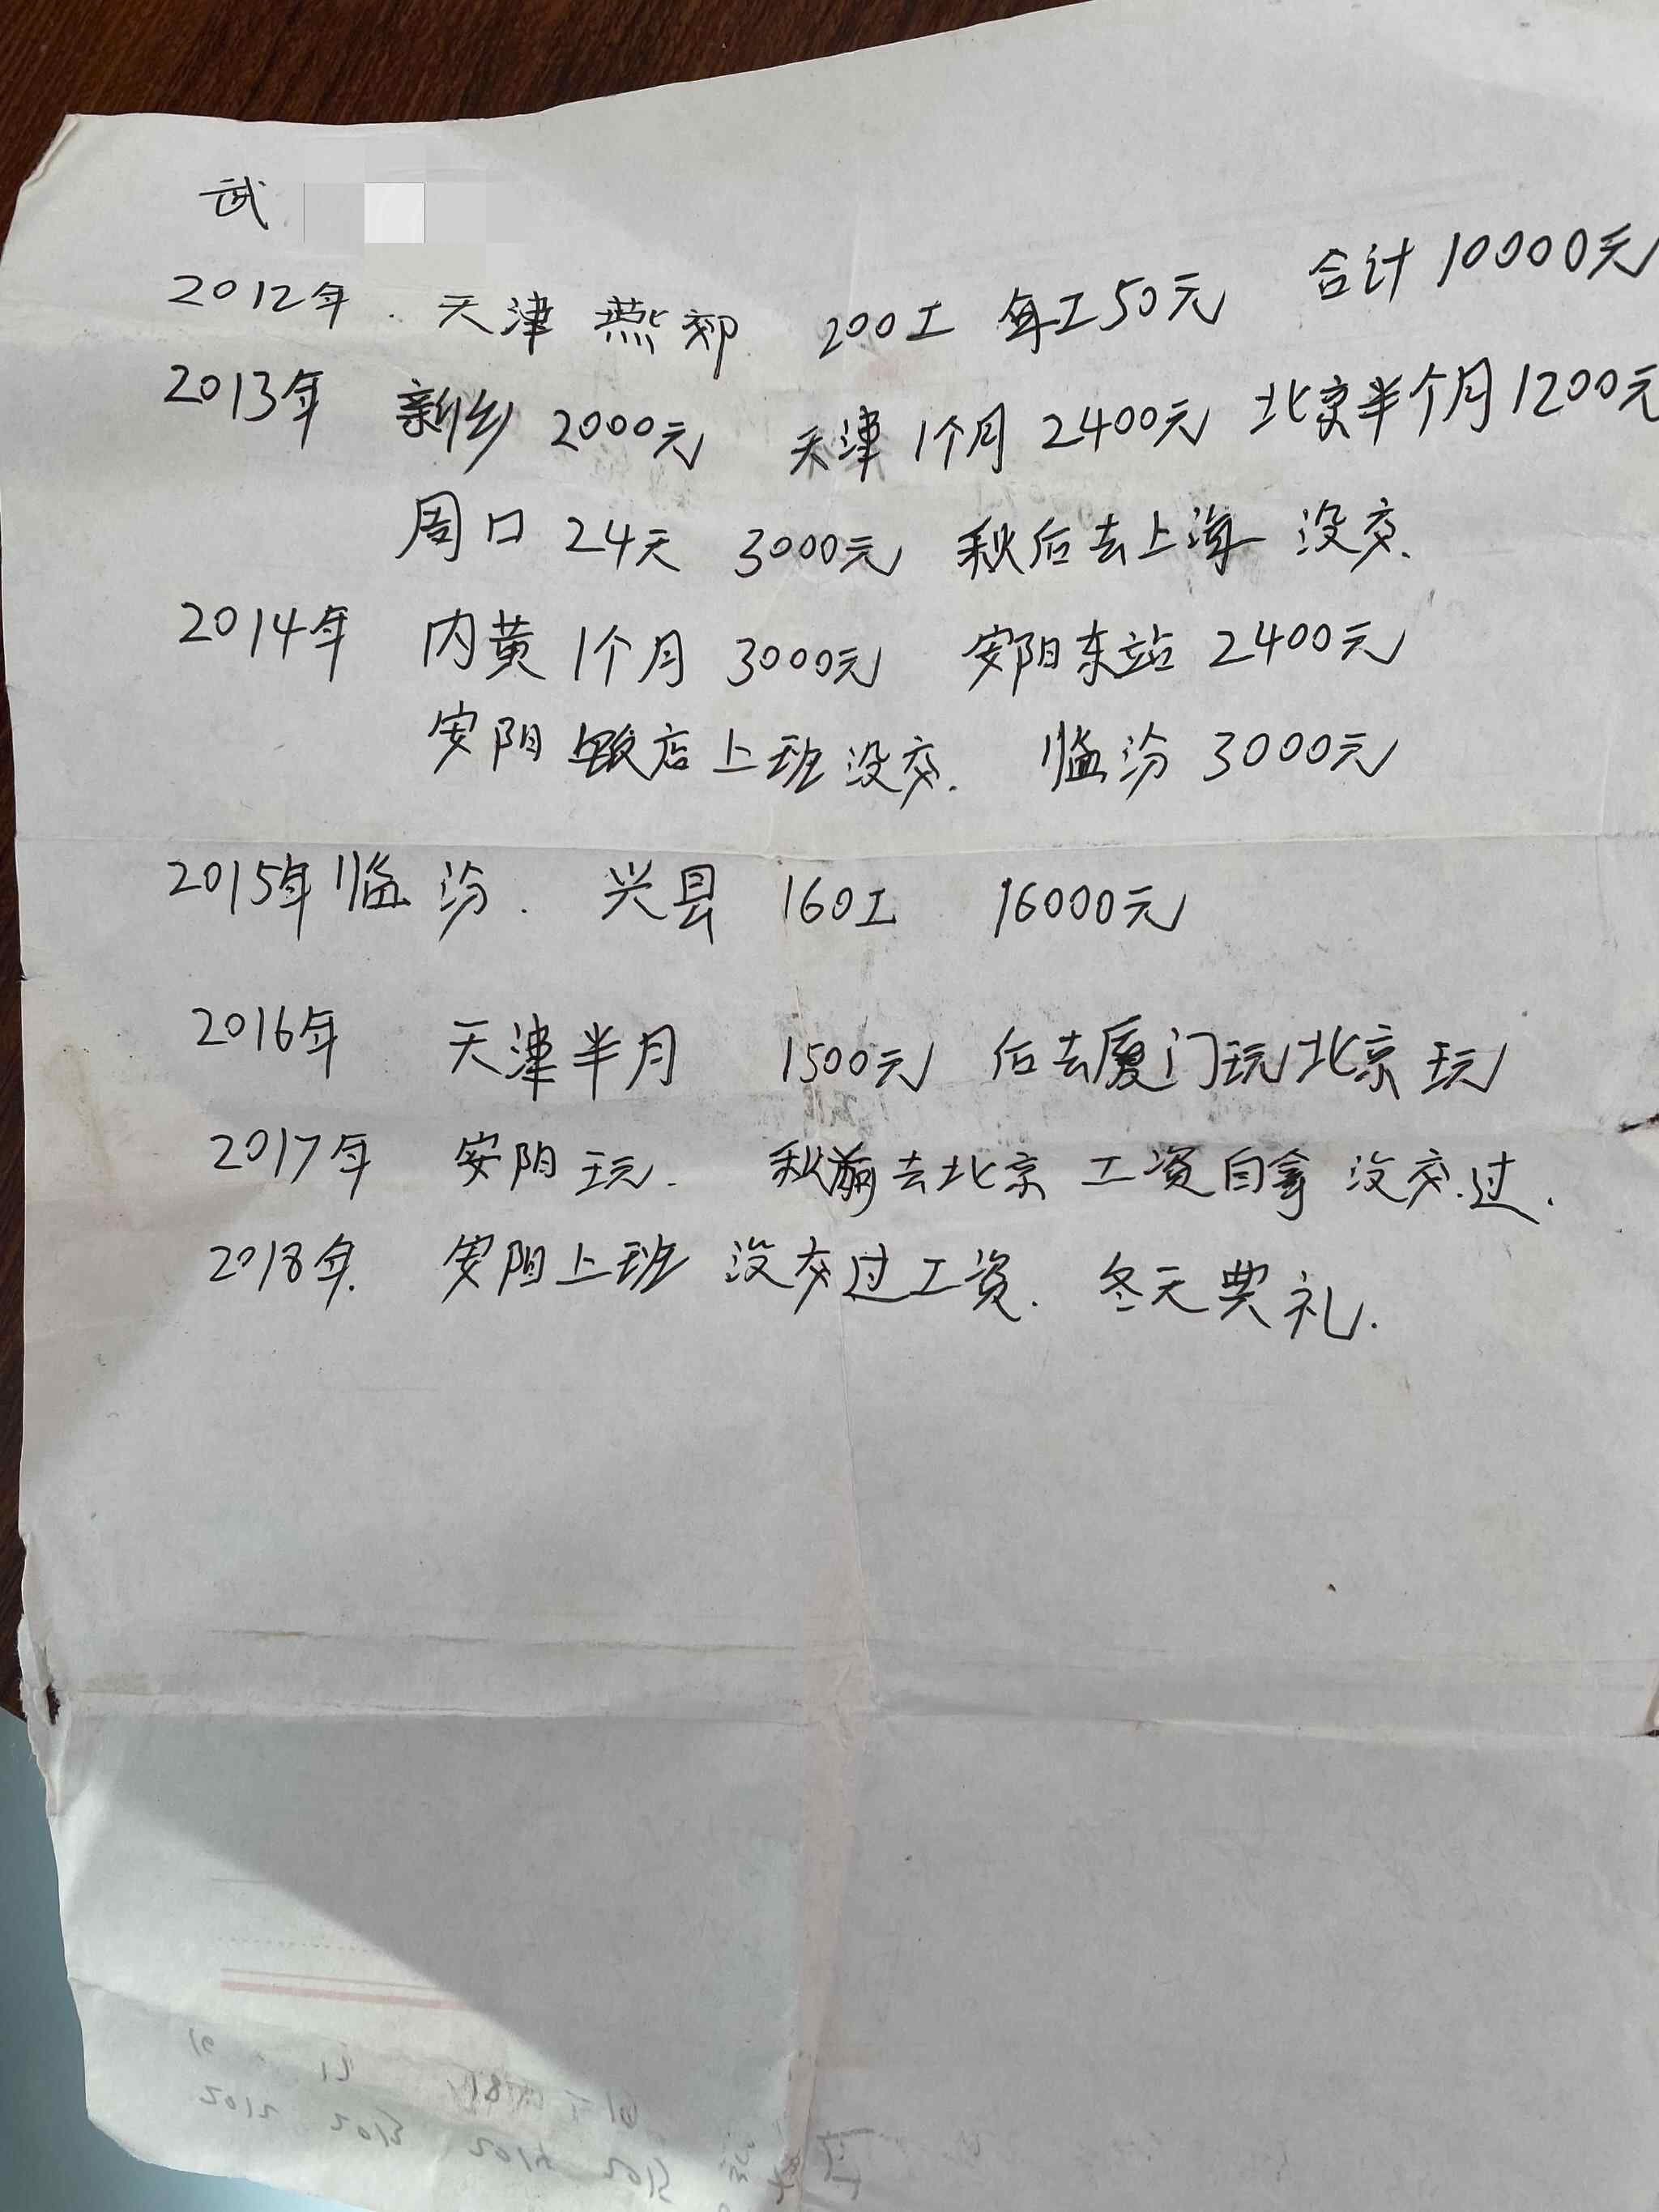 武
2012年. 天津 燕郊 200工 每工50元 合计10000元
2013年 新乡 2000元 天津 1个月 2400元 北京半个月1200元
周口 24天 3000元 秋后去上海 没交.
2014年 内黄 1个月 3000元 安阳东站 2400元
安阳 饭店上班没交. 临汾 3000元
2015年临汾. 兴县 160工 16000元
2016年 天津半月 1500元 后去厦门玩北京玩
2017年 安阳玩. 秋前去北京 工资自拿 没交.过.
2018年. 安阳上班 没交过工资. 冬天典礼.